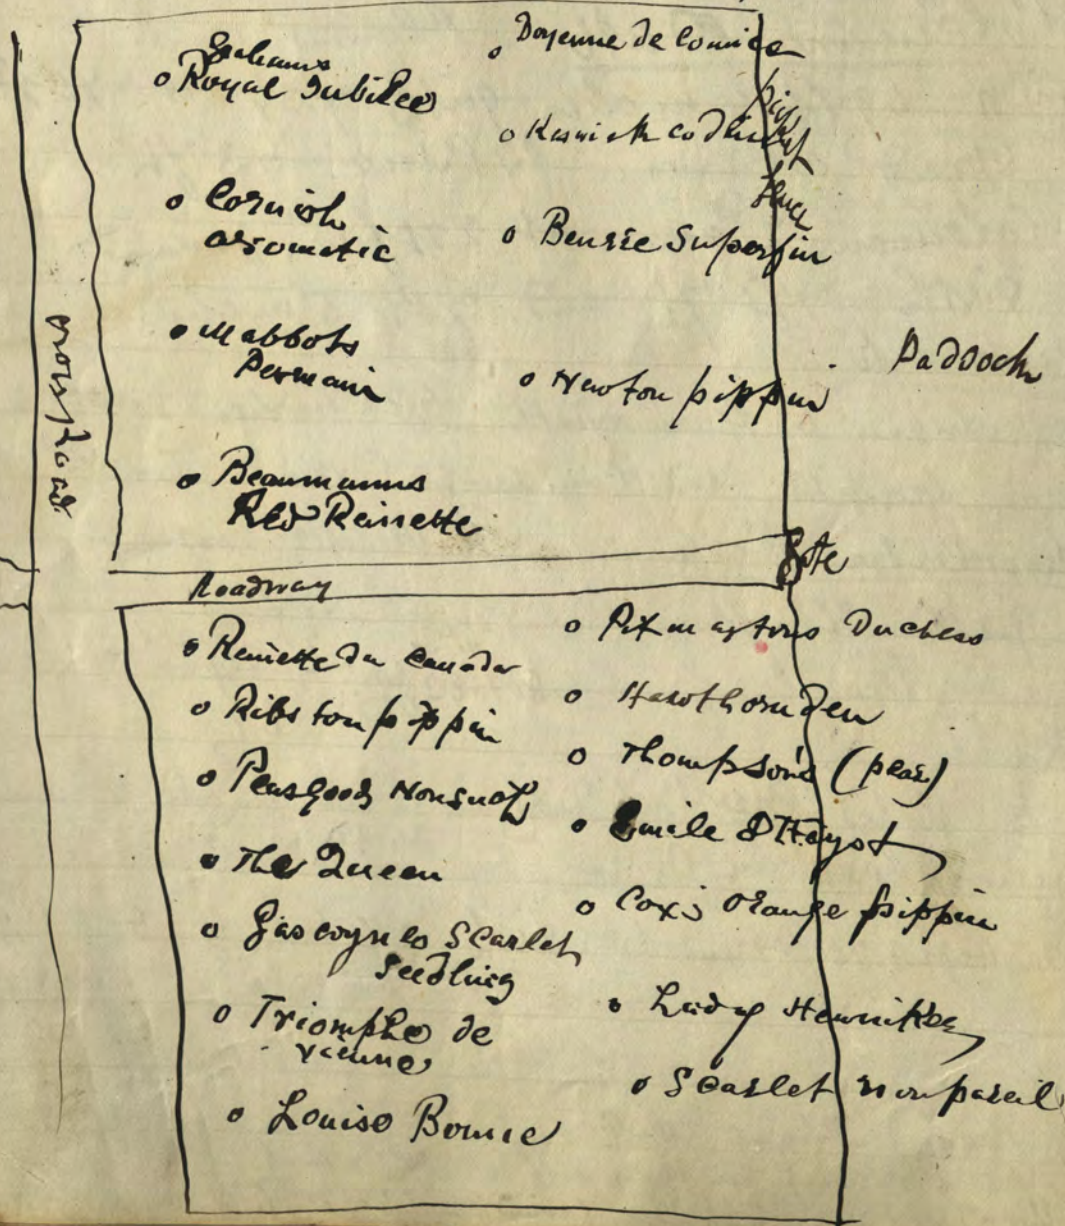 Grahams
Royal Jubilee
Cornish
aromatic
Mabbots
Permain
Beaumanns
Red Reinette
Doyenne de Comice
Keswick codlin
Beurre Superfin
Newton pippin
picket
fence
Paddock
Road
Gate
Roadway
Reinette du Canada
Ribston pippin
Peasgoods Nonsuch
The Queen
Gascoynes Scarlet
Seedling
Triomphe de
vienne
Louise Bonne
Pitmastons Duchess
Hawthornden
Thompson's (pear)
Emile D'Heyst
Cox's Orange pippin
Lady Hennikker
Scarlet nonpareil